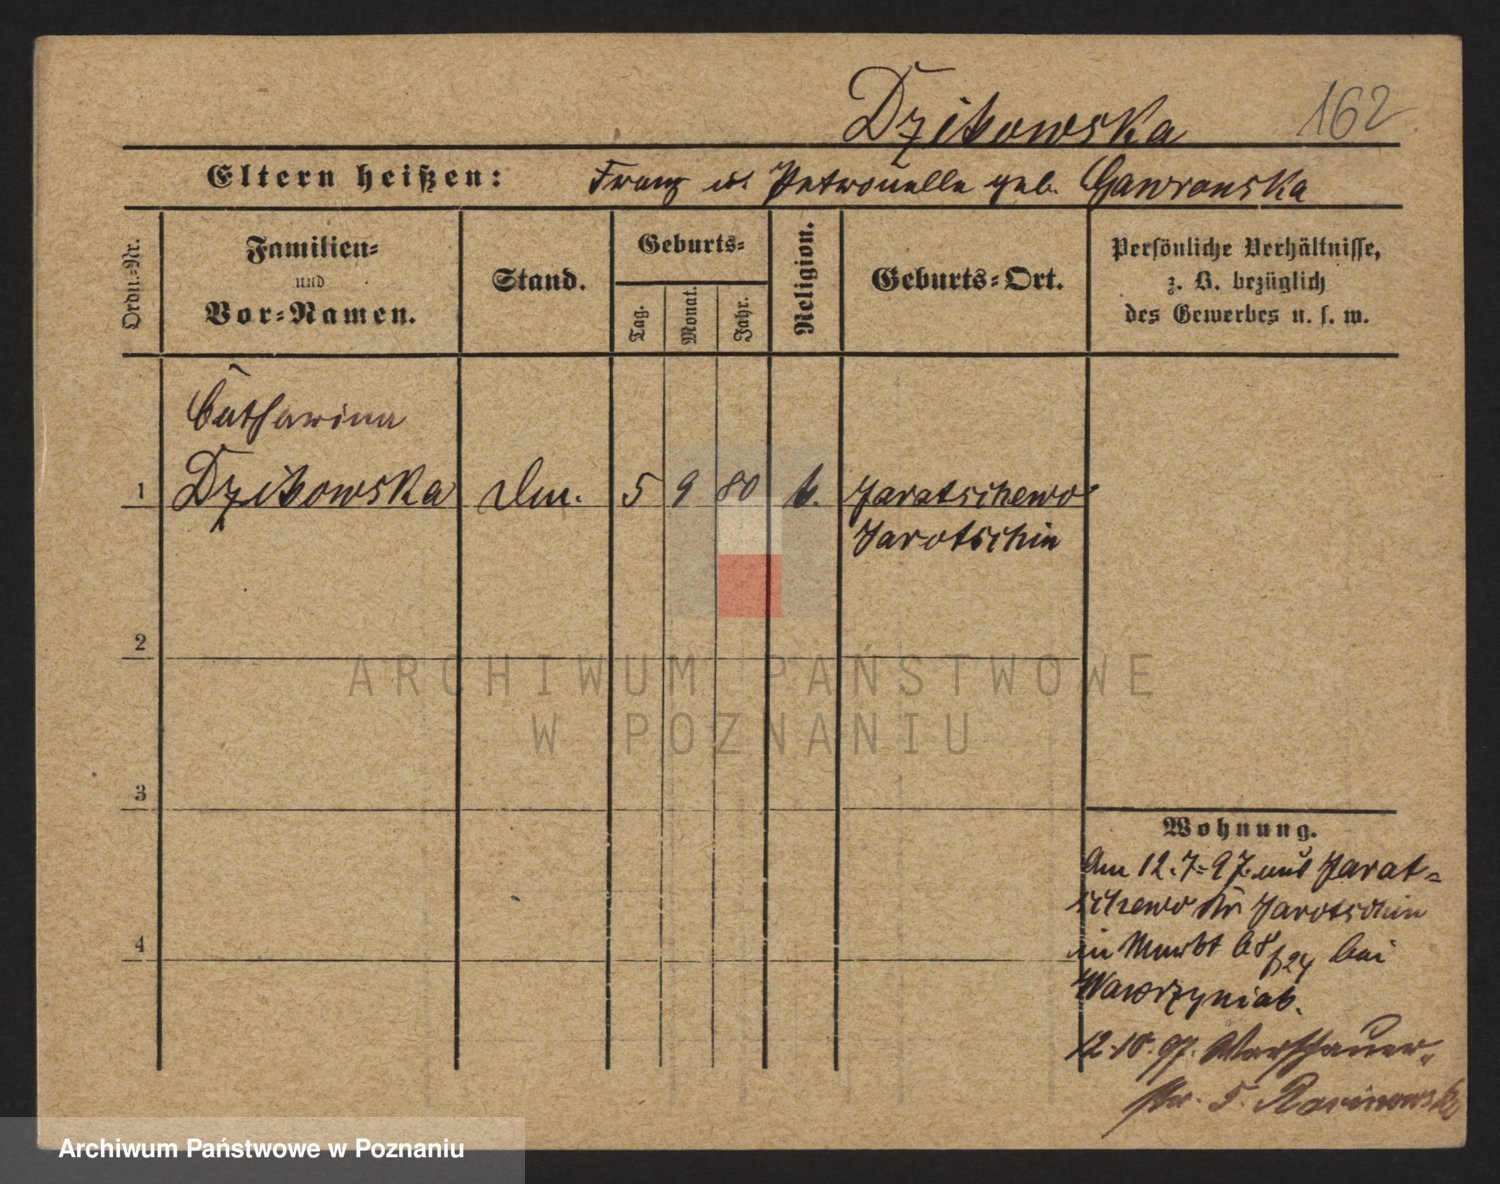 Dzikowska 162
Eltern heißen: Franz u. Petronella geb. Gawronska
Ordn.-Nr.
Familien-
und
Vor-Namen.
Stand.
Geburts-
Tag.
Monat.
Jahr.
Religion.
Geburts-Ort.
Persönliche Verhältnisse,
z. B. bezüglich
des Gewerbes u. s. w.
Catharina
1 Dzikowska Dm. 5 9 80 k. Jaratschewo
Jarotschin
2
3
4
Wohnung.
Am 12.7.97. aus Jarat-
schewo Kr. Jarotschin
in Markt 68/24 bei
Wawrzyniak.
12.10.97. Warschauer-
str. 5.
ARCHIWUM PAŃSTWOWE
W POZNANIU
Archiwum Państwowe w Poznaniu